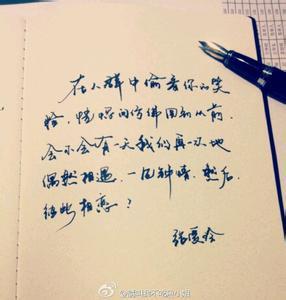 在人群中偷看你的笑
脸，恍惚间仿佛回到从前，
会不会有一天我们再一次地
偶然相遇，一见钟情，然后
彼此相恋？
张爱玲